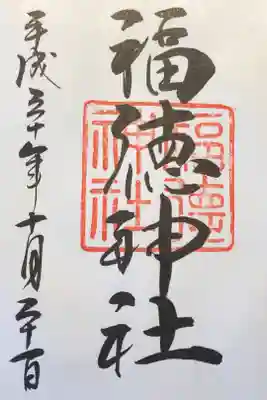 福徳神社
福徳神社
平成三十年十月二十一日